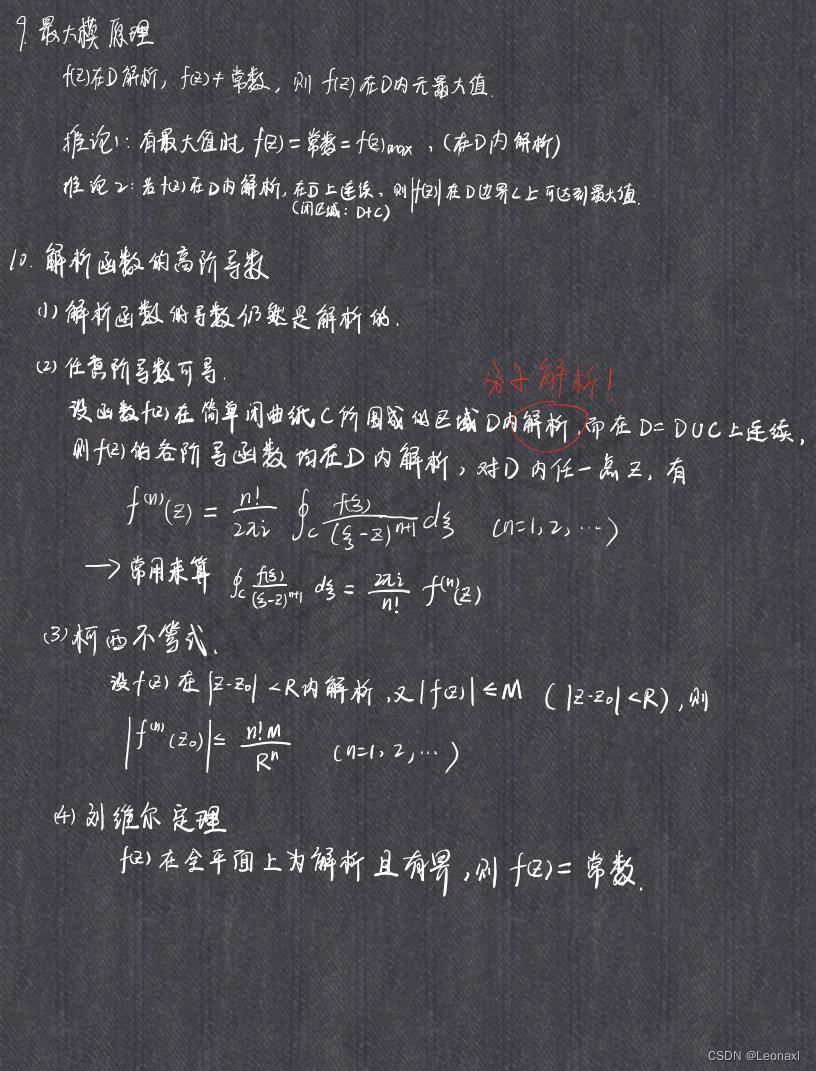 9. 最大模原理
f(z)在D解析，f(z)≠常数，则 f(z)在D内无最大值.
推论1：有最大值时 f(z)=常数=f(z)max，(在D内解析)
推论2：若f(z)在D内解析，在D̅上连续，则|f(z)|在D边界C上可达到最大值.
(闭区域：D+C)
10. 解析函数的高阶导数
(1) 解析函数的导数仍然是解析的.
(2) 任意阶导数可导.
分子解析！
设函数f(z)在简单闭曲线C所围成的区域D内解析，而在D=D∪C上连续，
则f(z)的各阶导函数均在D内解析，对D内任一点z，有
f⁽ⁿ⁾(z) = n!/2πi ∮_C f(ξ)/(ξ-z)^{n+1} dξ (n=1, 2, …)
→ 常用来算 ∮_C f(ξ)/(ξ-z)^{n+1} dξ = 2πi/n! f⁽ⁿ⁾(z)
(3) 柯西不等式.
设f(z)在|z-z₀|<R内解析，又|f(z)|≤M (|z-z₀|<R)，则
|f⁽ⁿ⁾(z₀)| ≤ n!M/Rⁿ (n=1, 2, …)
(4) 刘维尔定理
f(z)在全平面上为解析且有界，则f(z)=常数.
CSDN @Leonaxl